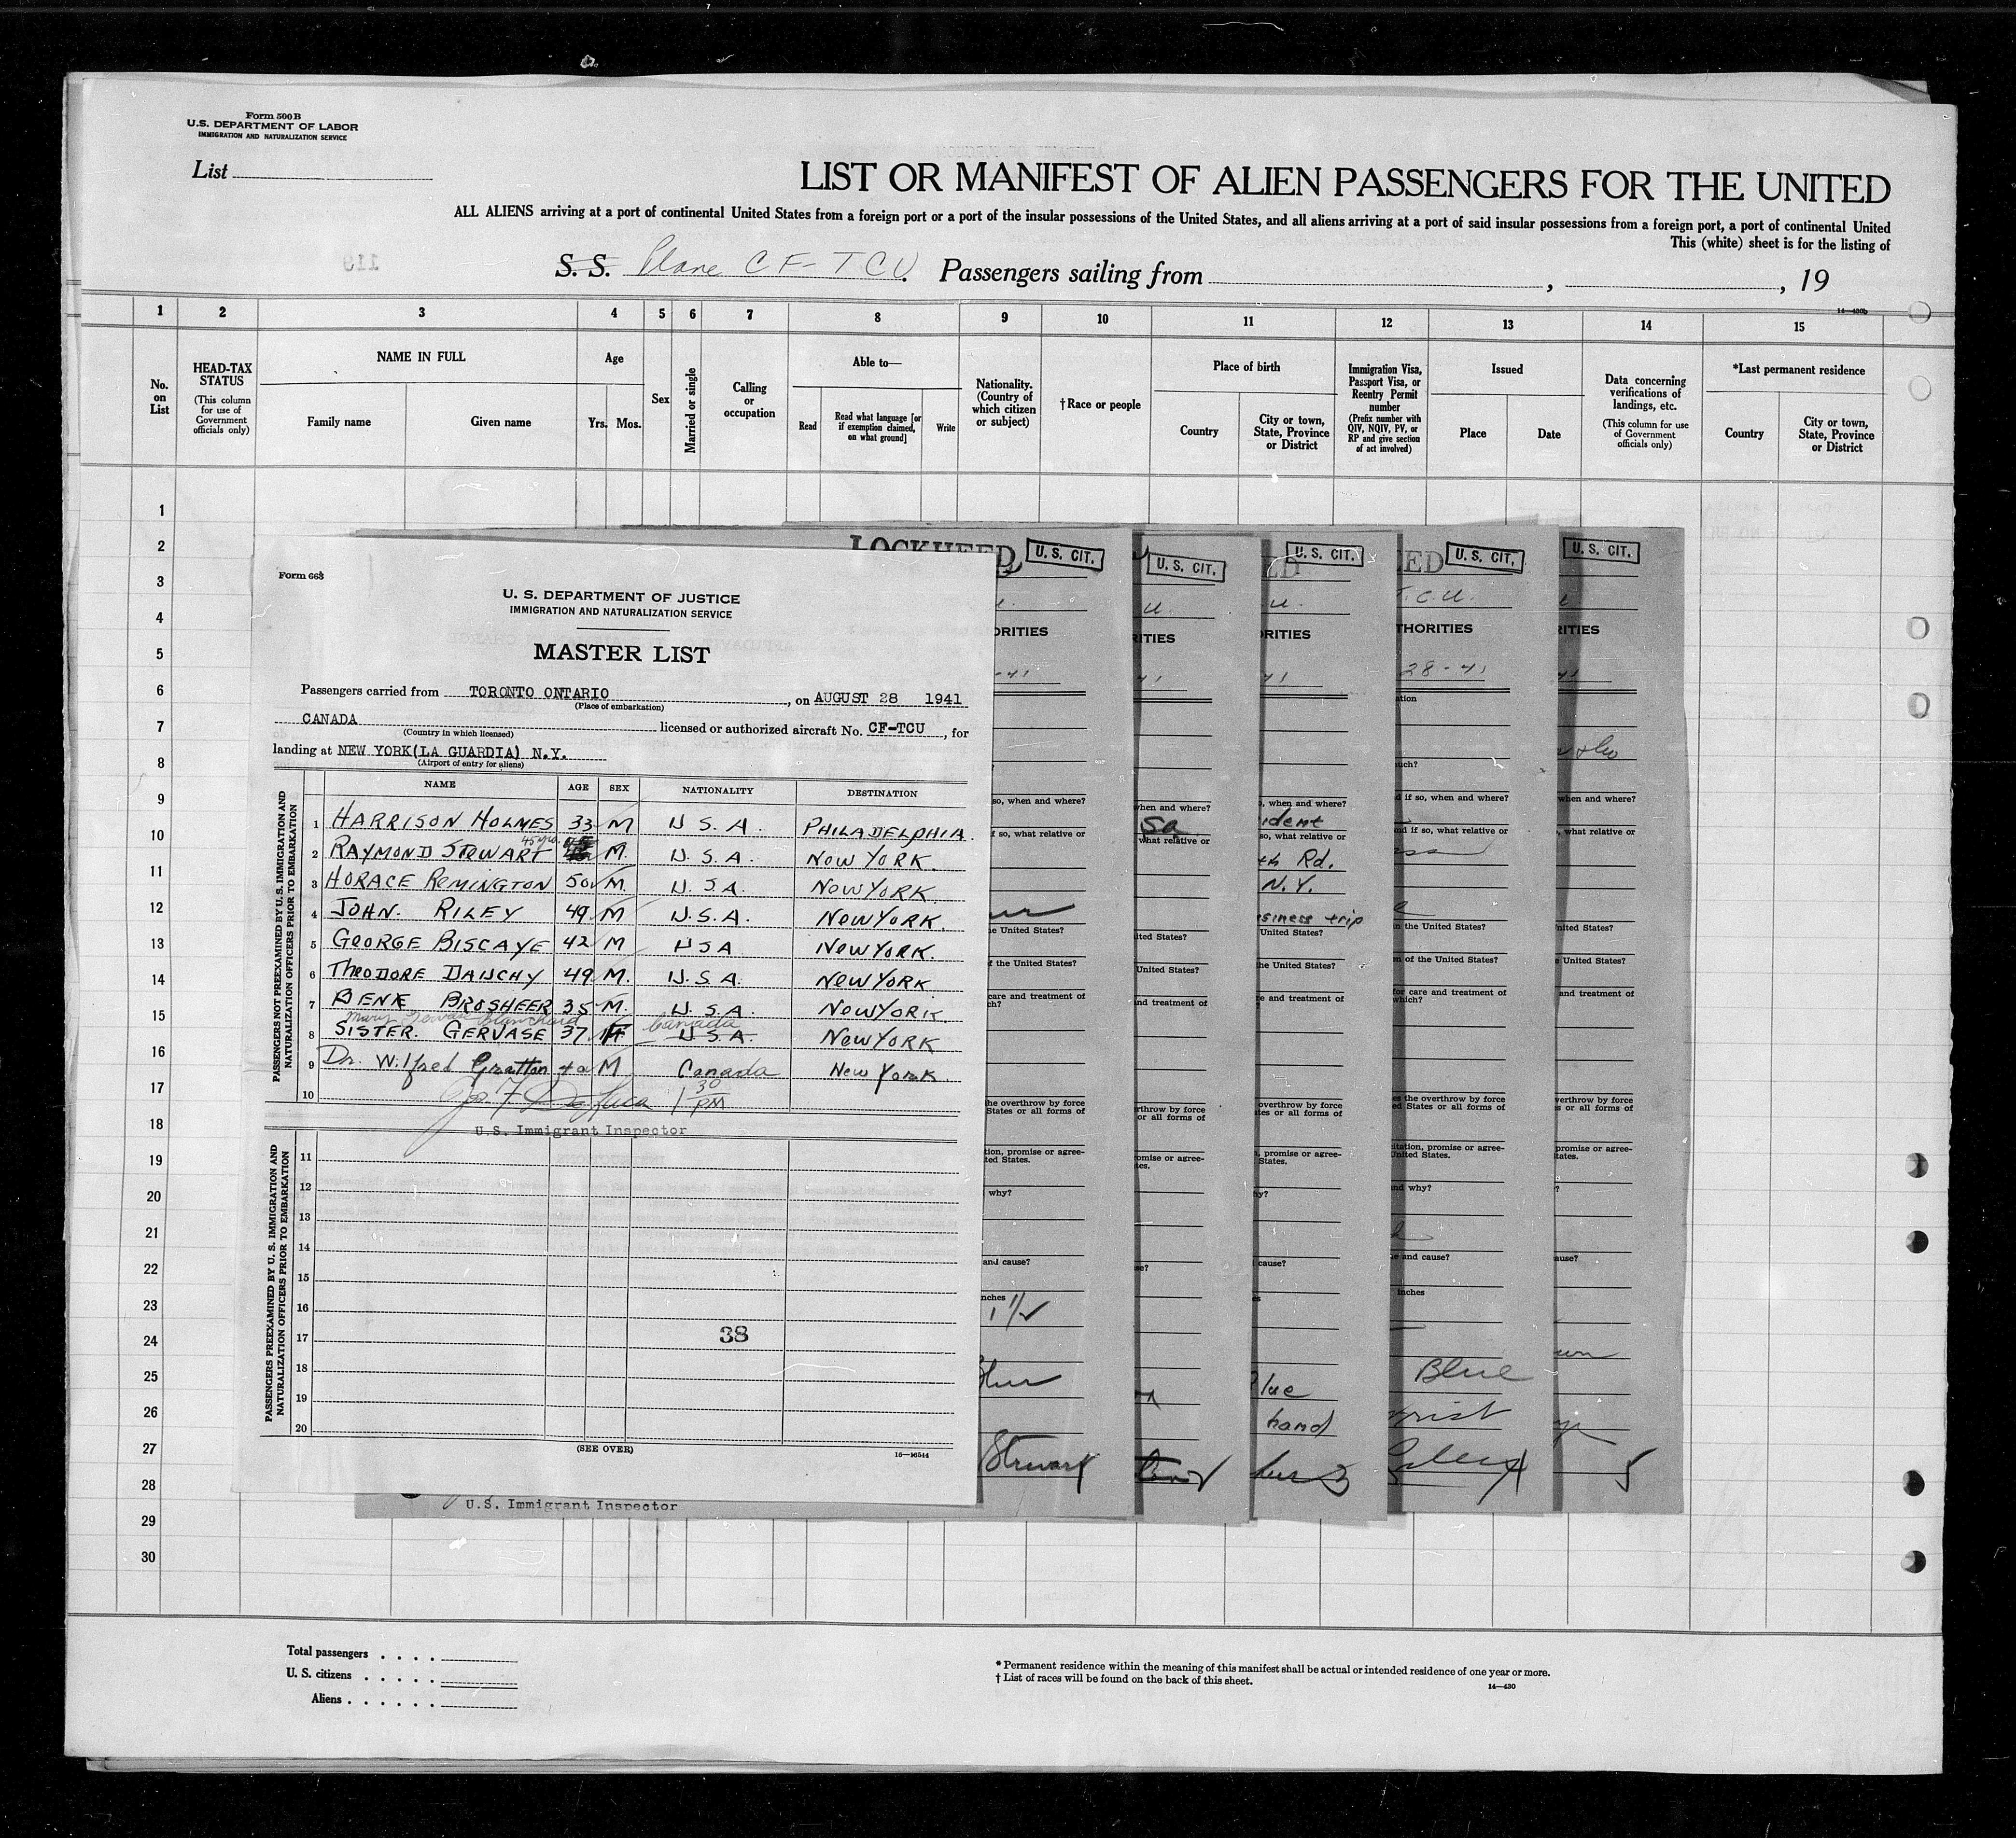 Form 500 B
U.S. DEPARTMENT OF LABOR
IMMIGRATION AND NATURALIZATION SERVICE
List
LIST OR MANIFEST OF ALIEN PASSENGERS FOR THE UNITED
ALL ALIENS arriving at a port of continental United States from a foreign port or a port of the insular possessions of the United States, and all aliens arriving at a port of said insular possessions from a foreign port, a port of continental United
This (white) sheet is for the listing of
S. S. Plane CF-TCU. Passengers sailing from , , 19
14—430b
1 2 3 4 5 6 7 8 9 10 11 12 13 14 15
No. on List
HEAD-TAX STATUS (This column for use of Government officials only)
NAME IN FULL
Family name Given name
Age
Yrs. Mos.
Sex
Married or single
Calling or occupation
Able to—
Read
Read what language [or if exemption claimed, on what ground]
Write
Nationality. (Country of which citizen or subject)
†Race or people
Place of birth
Country
City or town, State, Province or District
Immigration Visa, Passport Visa, or Reentry Permit number (Prefix number with QIV, NQIV, PV, or RP and give section of act involved)
Issued
Place Date
Data concerning verifications of landings, etc. (This column for use of Government officials only)
*Last permanent residence
Country
City or town, State, Province or District
1
2
3
4
5
6
7
8
9
10
11
12
13
14
15
16
17
18
19
20
21
22
23
24
25
26
27
28
29
30
Form 663
U. S. DEPARTMENT OF JUSTICE
IMMIGRATION AND NATURALIZATION SERVICE
MASTER LIST
Passengers carried from TORONTO ONTARIO, on AUGUST 28 1941
(Place of embarkation)
CANADA licensed or authorized aircraft No. CF-TCU, for
(Country in which licensed)
landing at NEW YORK(LA GUARDIA) N.Y.
(Airport of entry for aliens)
NAME AGE SEX NATIONALITY DESTINATION
PASSENGERS NOT PREEXAMINED BY U.S. IMMIGRATION AND NATURALIZATION OFFICERS PRIOR TO EMBARKATION
1 HARRISON HOLMES 33 M U S. A. PHILADELPHIA.
2 RAYMOND STEWART M. U. S. A. NEW YORK.
3 HORACE REMINGTON 50 M. U. S.A. NEW YORK.
4 JOHN. RILEY 49 M U.S.A. NEW YORK.
5 GEORGE BISCAYE 42 M USA NEW YORK.
6 THEODORE DAUCHY 49 M. U.S.A. NEW YORK
7 BENK BROSHEER 35 M. U. S.A. NEW YORK.
Mary Blanchard Canada
8 SISTER. GERVASE 37 F U.S.A. NEW YORK
9 Dr. Wilfred Gratton 40 M Canada New York.
10 1 30 PM
U.S. Immigrant Inspector
PASSENGERS PREEXAMINED BY U.S. IMMIGRATION AND NATURALIZATION OFFICERS PRIOR TO EMBARKATION
11
12
13
14
15
16
17
18
19
20
38
(SEE OVER)
16—16544
U.S. Immigrant Inspector
LOCKHEED
U. S. CIT.
U. S. CIT.
U. S. CIT.
U. S. CIT.
U. S. CIT.
T.C.U.
THORITIES
28-41
if so, when and where?
if so, what relative or
N.Y.
business trip
in the United States?
of the United States?
for care and treatment of
which?
the overthrow by force
States or all forms of
promise or agree-
United States.
and why?
and cause?
inches
Blue
hand
Stewart
Total passengers . . . .
U. S. citizens . . . . .
Aliens . . . . . .
* Permanent residence within the meaning of this manifest shall be actual or intended residence of one year or more.
† List of races will be found on the back of this sheet.
14—430